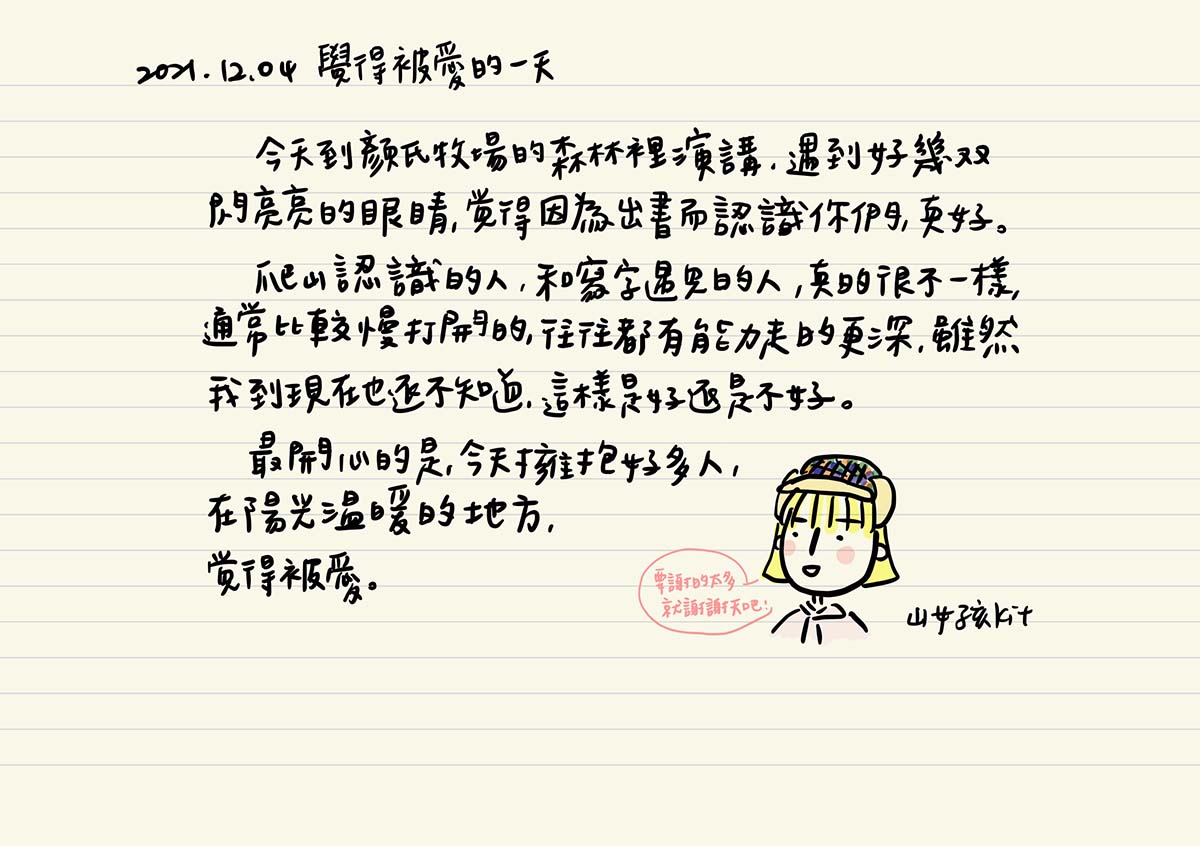 2021.12.04 覺得被愛的一天
今天到顏氏牧場的森林裡演講，遇到好幾双
閃亮亮的眼睛，覚得因為出書而認識你們，真好。
爬山認識的人，和寫字遇見的人，真的很不一樣，
通常比較慢打開的，往往都有能力走的更深，雖然
我到現在也还不知道，這樣是好还是不好。
最開心的是，今天擁抱好多人，
在陽光溫暖的地方，
覚得被愛。
要謝的太多
就謝謝天吧！
山女孩Kit